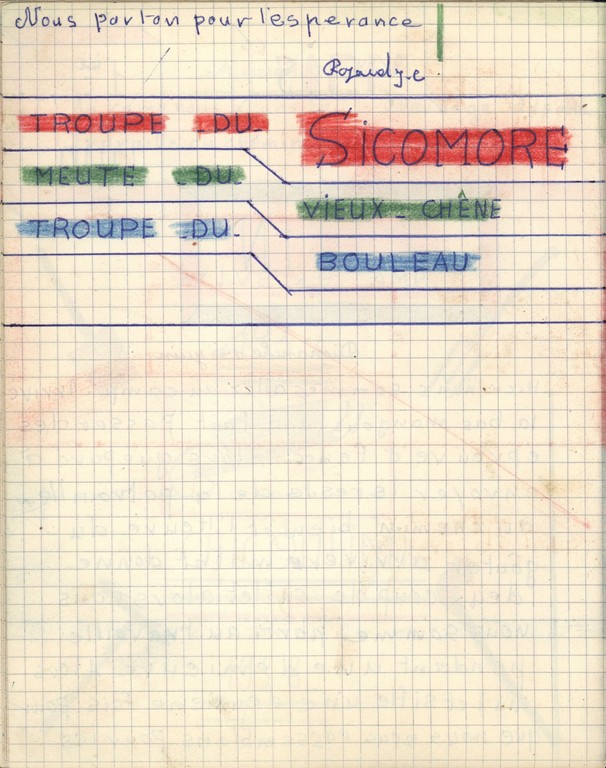 Nous parton pour l'esperance
TROUPE - DU - SiCOMORE
MEUTE - DU - ViEUX - CHÊNE
TROUPE - DU - BOULEAU